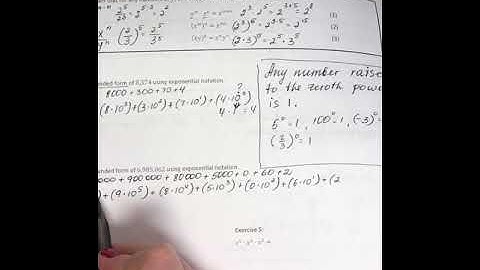 2⁵/2³ = 2⁵⁻³ = 2²
(2/3)⁵ = 2⁵/3⁵
2³·2⁵ = 2³⁺⁵ = 2⁸ (1)
(2³)⁵ = 2³·⁵ = 2¹⁵ (2)
(2·3)⁵ = 2⁵·3⁵ (3)
form of 8,374 using exponential notation.
8000 + 300 + 70 + 4
(8·10³)+(3·10²)+(7·10¹)+(4·10⁰)
?
4·1 = 4
Any number raise
to the zeroth powe
is 1.
5⁰=1, 100⁰=1, (-3)⁰
(2/3)⁰=1
form of 6,985,062 using exponential notation.
000 + 900000 + 80000 + 5000 + 0 + 60 + 2
) + (9·10⁵) + (8·10⁴) + (5·10³) + (0·10²) + (6·10¹) + (2
Exercise 5: